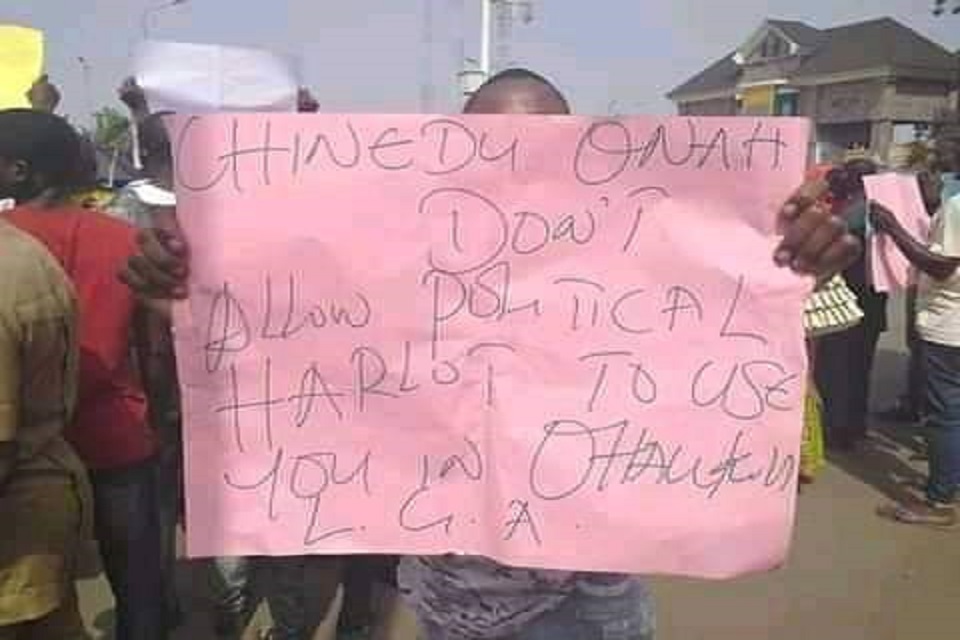 CHINEDU ONAH
DON'T
Allow POLITICAL
HARLOT TO USE
YOU IN OHAUKWU
L.G.A.